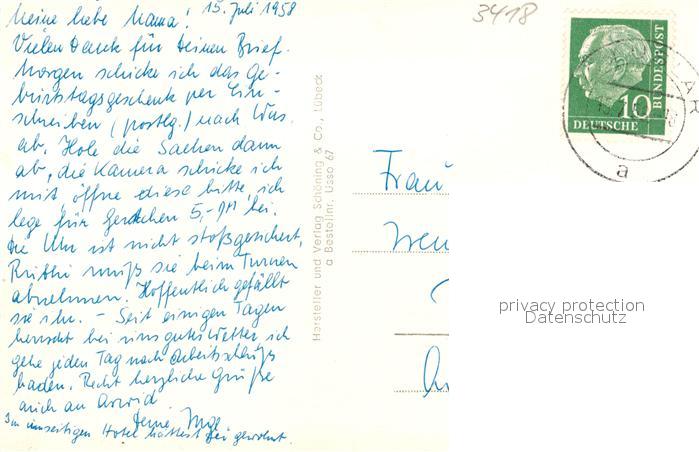 15. Juli 1958
Meine liebe Mama!
Vielen Dank für Deinen Brief.
Morgen schicke ich das Ge-
burtstagsgeschenk per Ein-
schreiben (postlg.) nach Was.
ab. Hole die Sachen dann
ab, die Kamera schicke ich
mit, öffne diese bitte, ich
lege für Gerdchen 5,- DM bei.
Die Uhr ist nicht stoßgesichert,
Ruthi muß sie beim Turnen
abnehmen. Hoffentlich gefällt
sie ihr. – Seit einigen Tagen
herrscht bei uns gutes Wetter, ich
gehe jeden Tag nach Arbeitsschluß
baden. Recht herzliche Grüße
auch an Arvid.
Deine Inge
Im umseitigen Hotel hattest Du gewohnt.
Hersteller und Verlag Schöning & Co., Lübeck
a Bestellnr. Usso 67
3418
10
DEUTSCHE
BUNDESPOST
a
Frau
privacy protection
Datenschutz